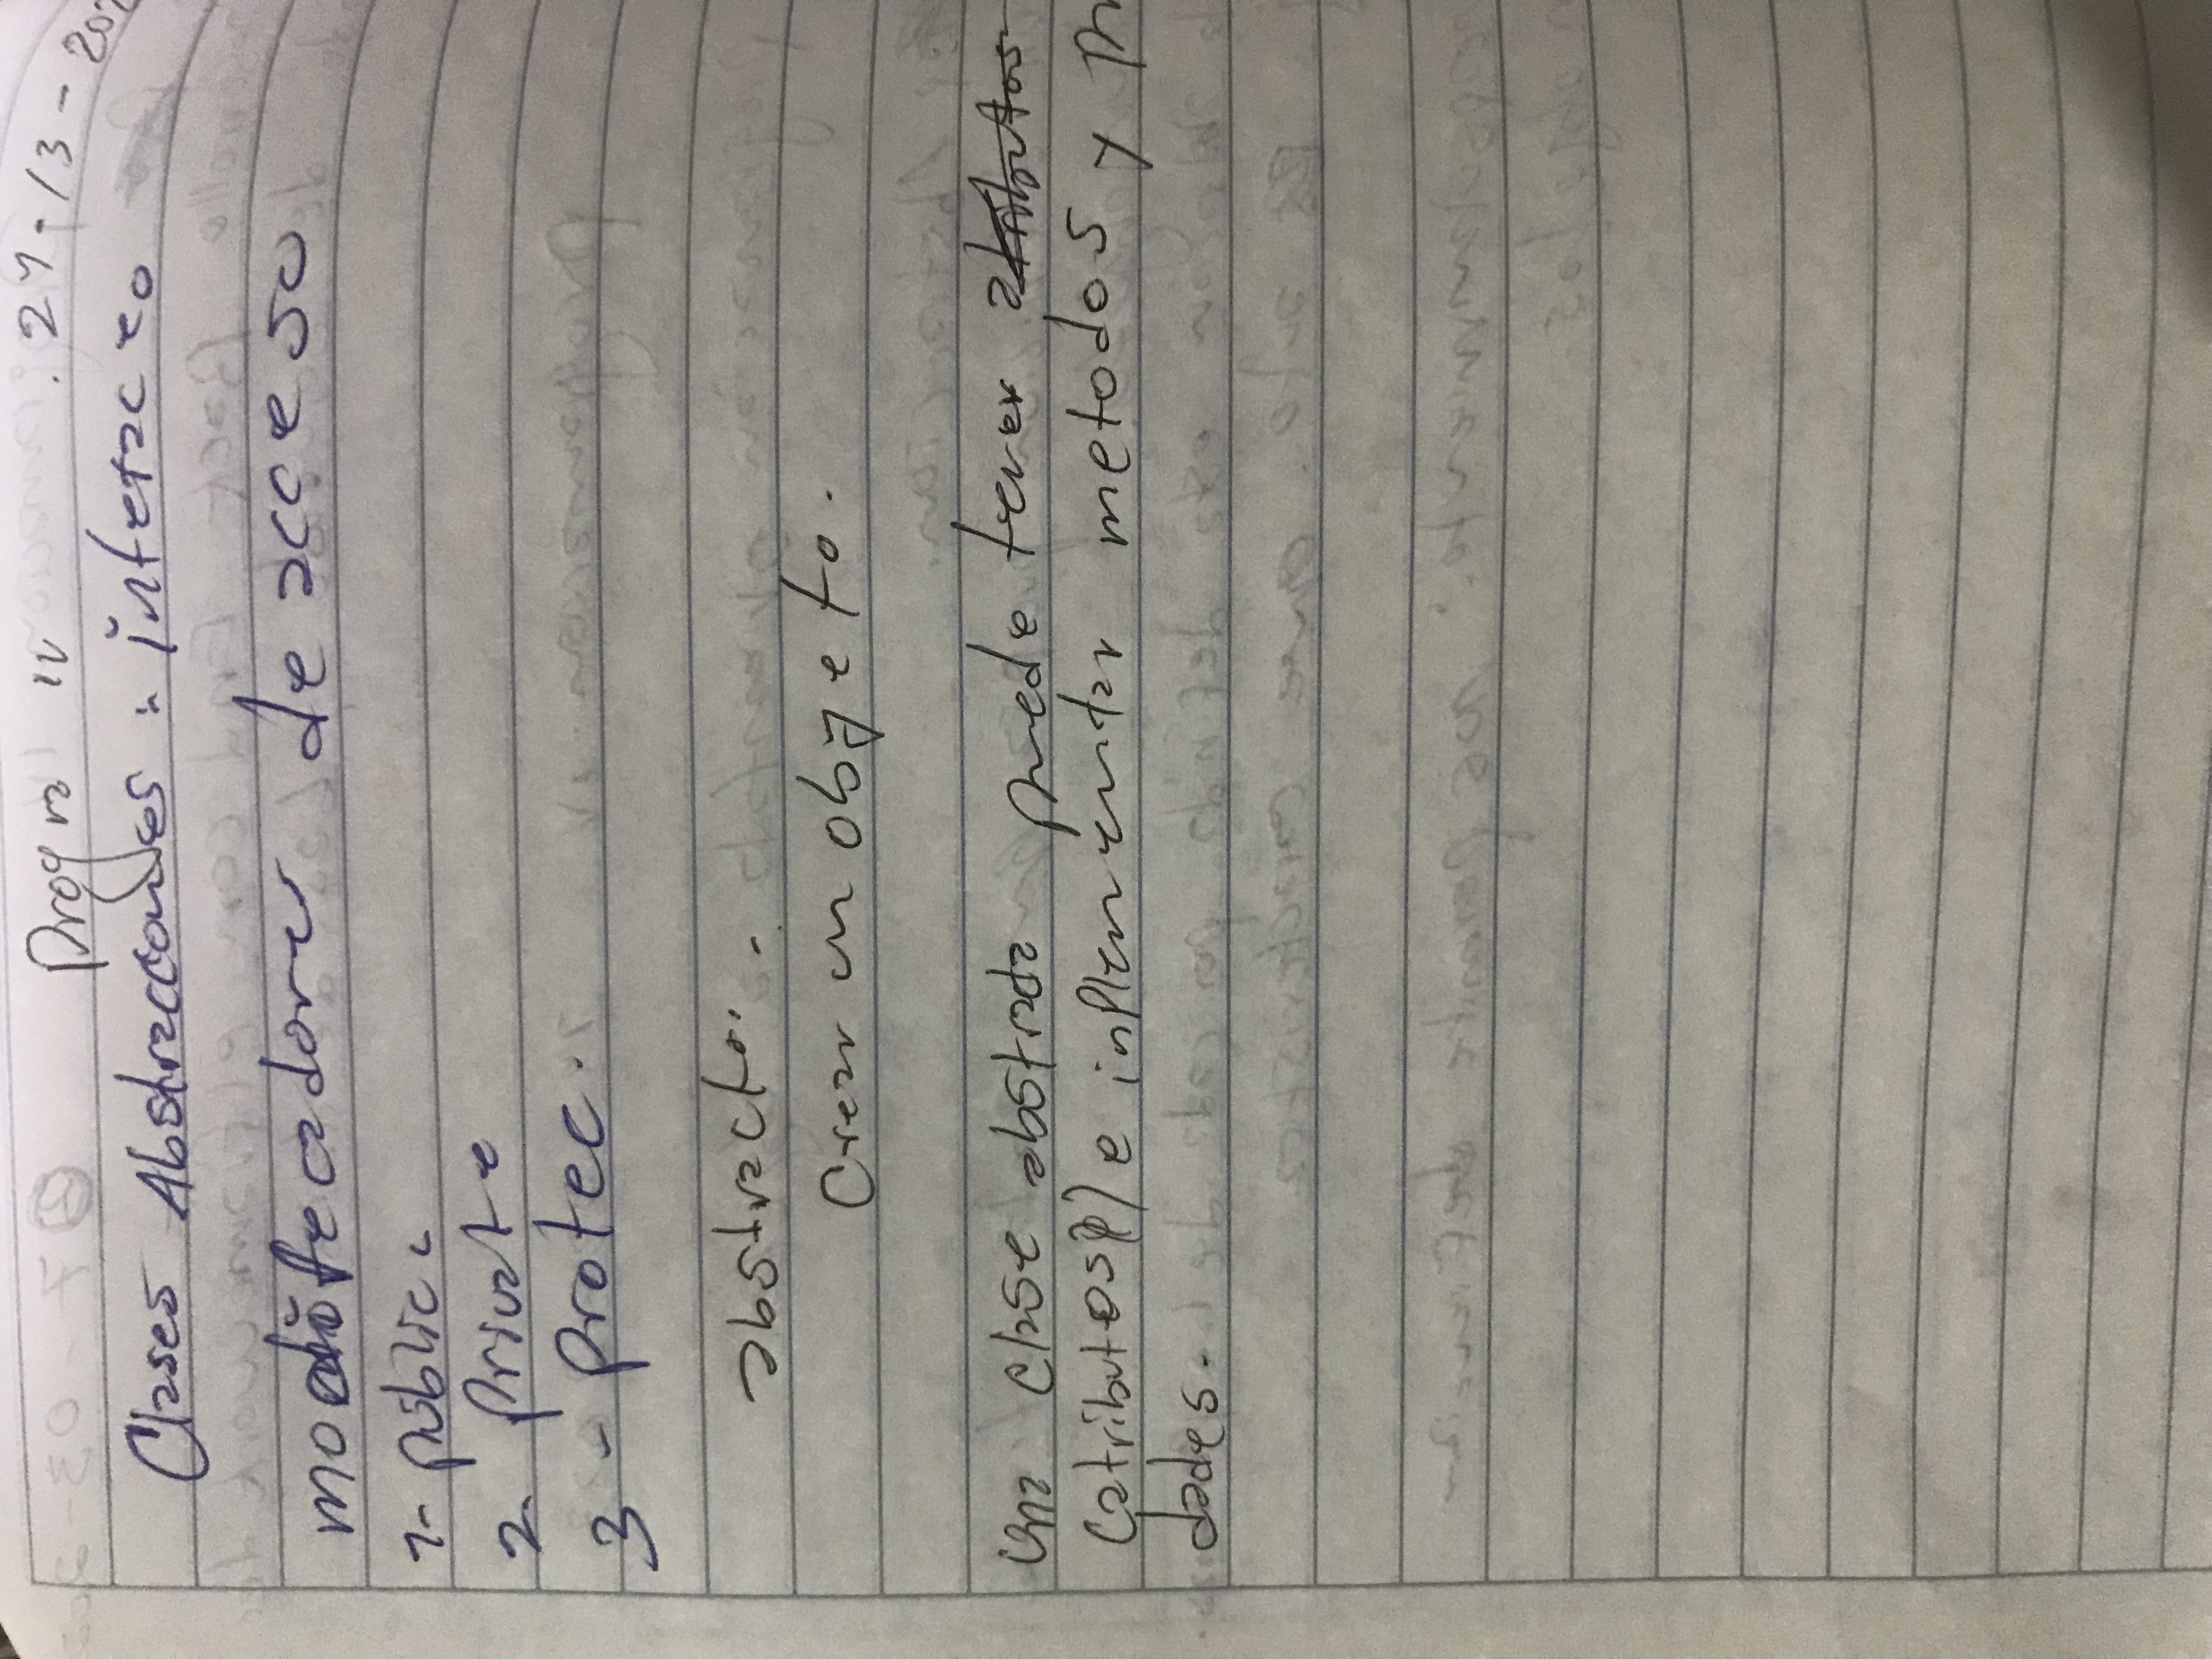 Progra IV . 27-13-202
Clases Abstraccones : interace
modifecadores de acceso
1- públic
2. private
3 - protec.
abstracto. -
Crear un objeto.
una clase abstracta puede tener atributos
(atributos) e inplementar metodos y pr
dades.